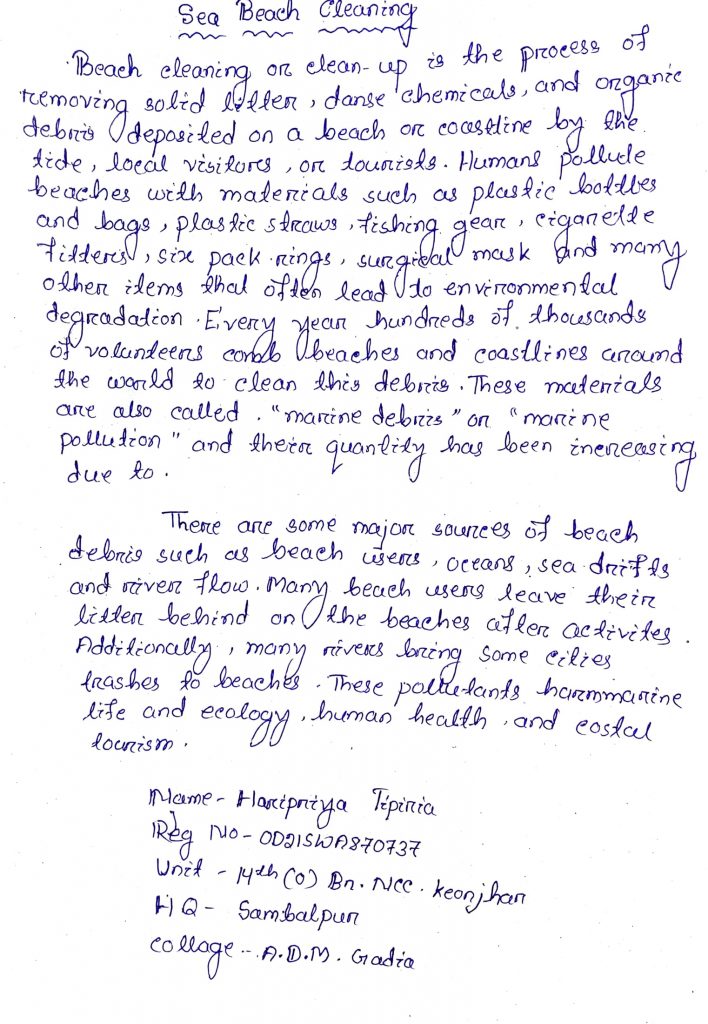 Sea Beach Cleaning
Beach cleaning or clean-up is the process of
removing solid litter, danse chemicals, and organic
debris deposited on a beach or coastline by the
tide, local visitors, or tourists. Humans pollute
beaches with materials such as plastic bottles
and bags, plastic straws, fishing gear, cigarette
filters, six pack rings, surgical mask and many
other items that often lead to environmental
degradation. Every year hundreds of thousands
of volunteers comb beaches and coastlines around
the world to clean this debris. These materials
are also called. "marine debris" or "marine
pollution" and their quantity has been increasing
due to.
There are some major sources of beach
debris such as beach users, oceans, sea drifts
and river flow. Many beach users leave their
litter behind on the beaches after activites.
Additionally, many rivers bring some cities
trashes to beaches. These pollutants harmmarine
life and ecology, human health, and costal
tourism.
Name - Haripriya Tipiria
Reg No - OD21SWA870737
Unit - 14th (O) Bn. NCC. Keonjhar
HQ - Sambalpur
Collage - A.D.M. Gadia